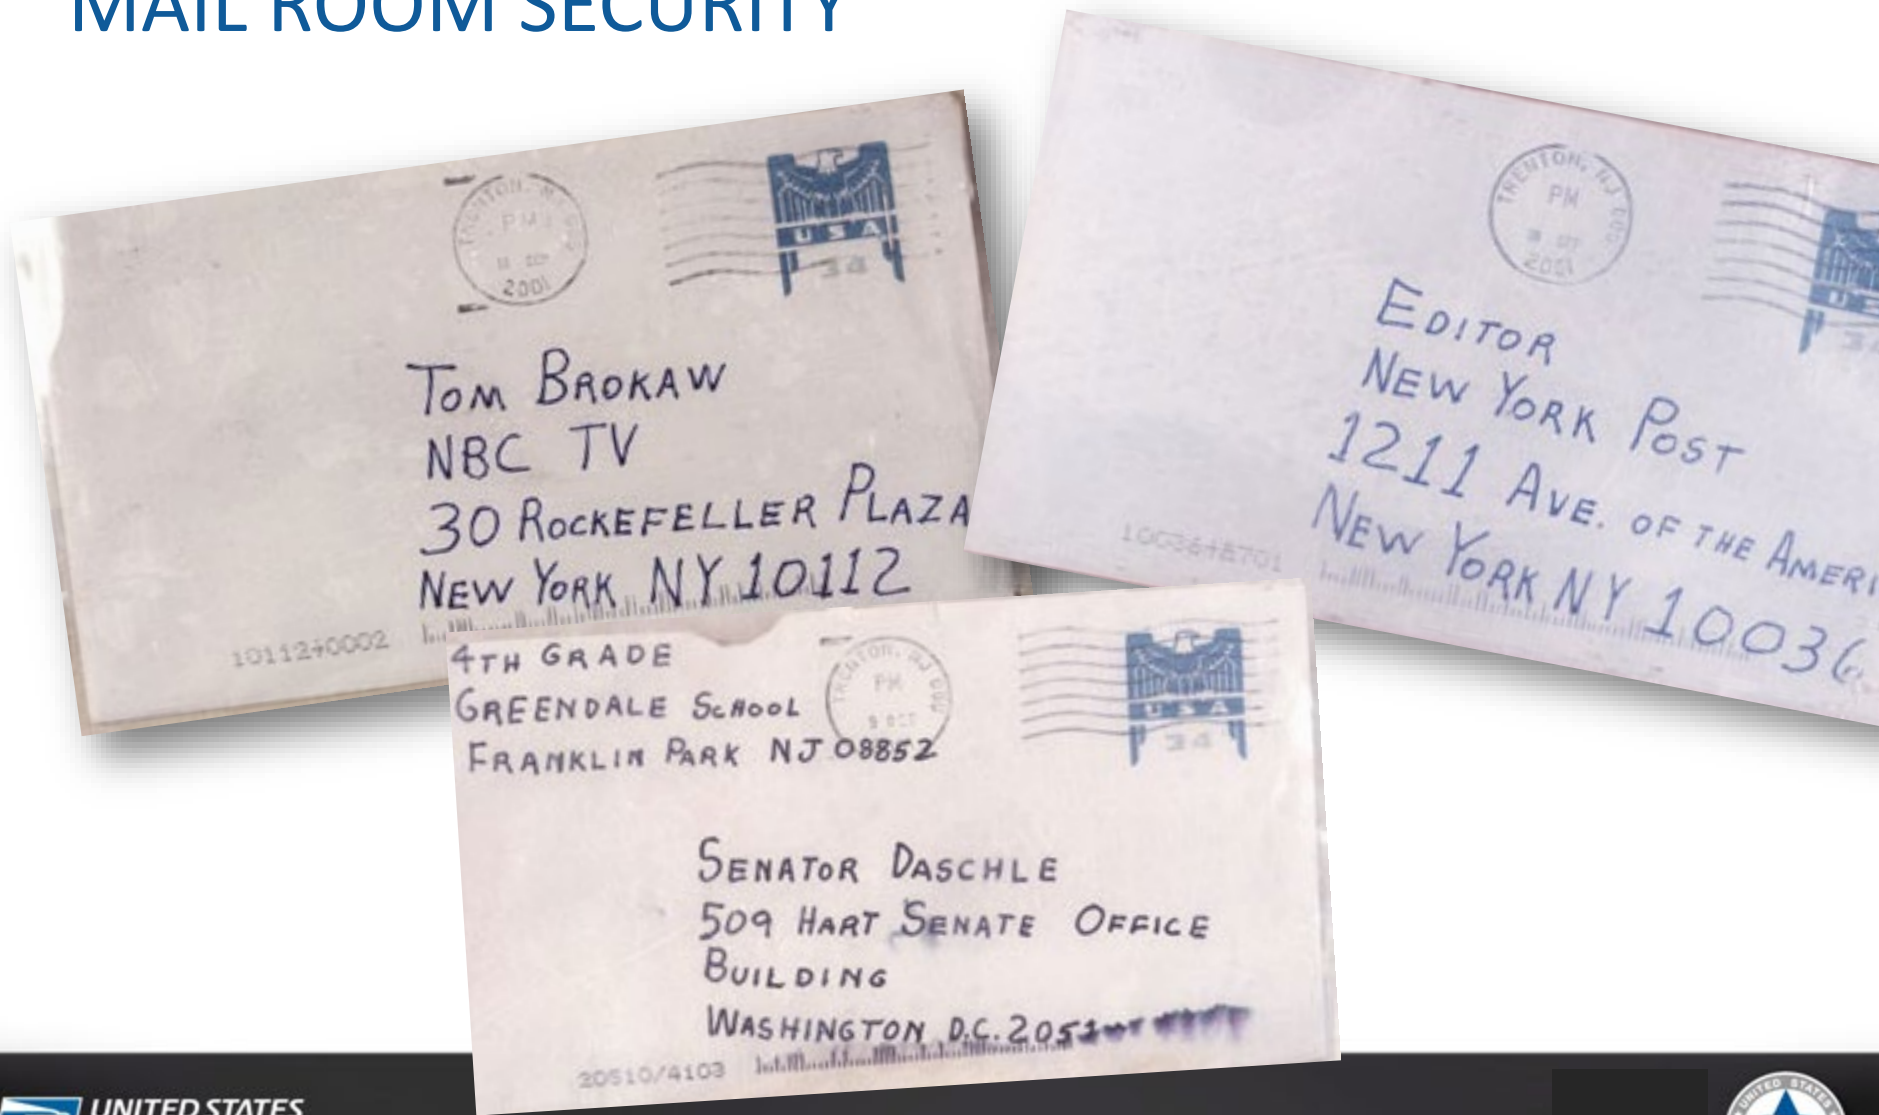 MAIL ROOM SECURITY
TRENTON, NJ
PM
2001
USA
34
TOM BROKAW
NBC TV
30 ROCKEFELLER PLAZA
NEW YORK NY 10112
10112+0002
TRENTON, NJ
PM
2001
34
EDITOR
NEW YORK POST
1211 AVE. OF THE AMERI
NEW YORK NY 10036
10036+8701
4TH GRADE
GREENDALE SCHOOL
FRANKLIN PARK NJ 08852
TRENTON, NJ
PM
9 OCT
USA
34
SENATOR DASCHLE
509 HART SENATE OFFICE
BUILDING
WASHINGTON D.C. 205
20510/4103
UNITED STATES
UNITED STATES